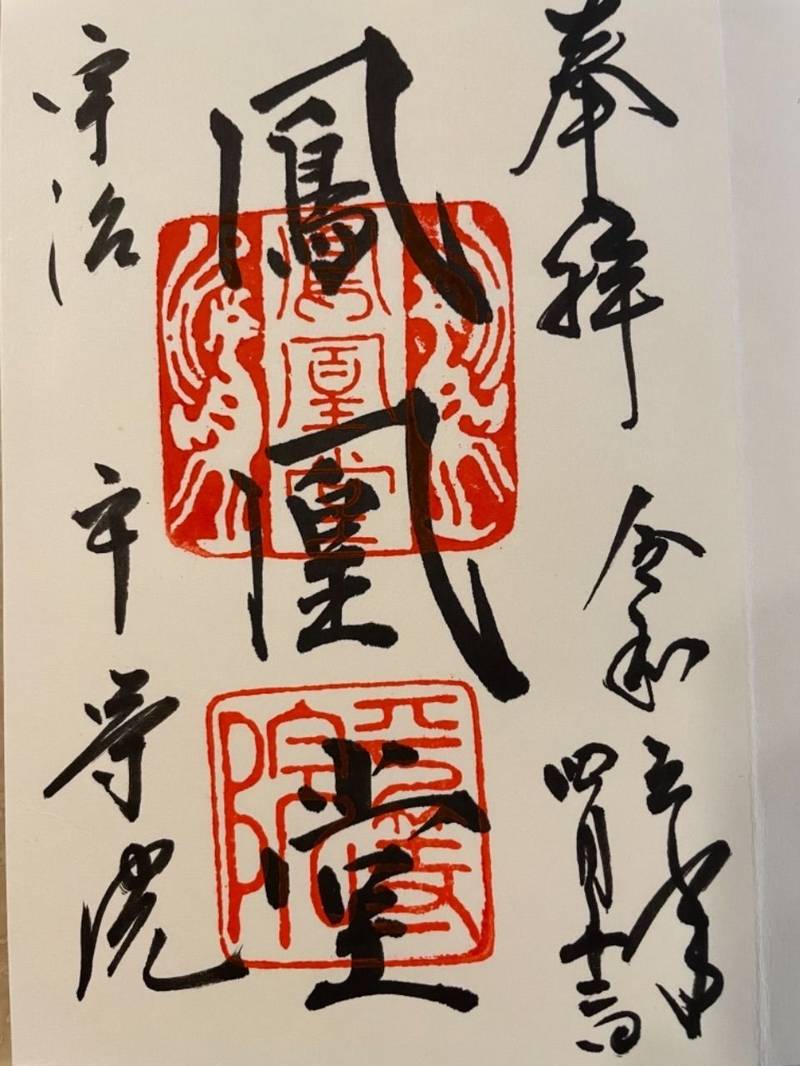 奉拝
令和五年
四月十二日
鳳凰堂
鳳凰堂
平等院
宇治
平等院